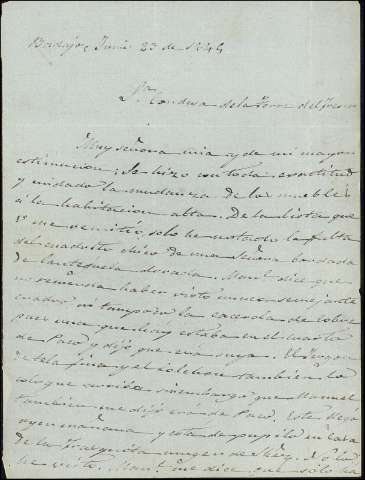 Badajoz Junio 23 de 1844
Sra. Condesa de la Torre del Fresno
Muy señora mia y de mi mayor
estimacion; Se hizo con toda exactitud
y cuidado la mudanza de los muebles
á la habitacion alta. De la lista que
se me remitió, solo he notado la falta
del cuadrito chico de una bordada
de lantejuela dorada. Manl. dice que
haber visto nunca semejante
cuadro, ni tampoco la cacerola de cobre
pues una que hay estaba en el cuarto
de Paco y dijo que era suya. El
de tela fina y el colchon tambien lo
coloque arriba sin embargo que Manuel
tambien me dijo era de Paco. Este llegó
ayer mañana y esta de pupilo en casa
de la de Rey. Yo no lo
he visto. Manl. me dice que solo ha